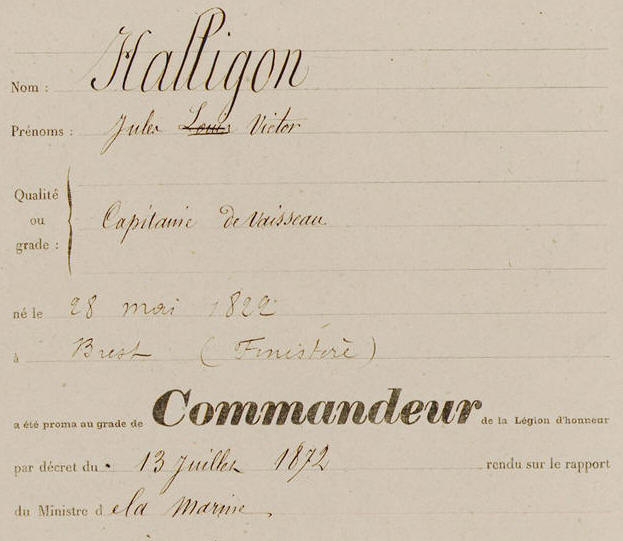 Nom : Halligon
Prénoms : Jules Louis Victor
Qualité
ou
grade : Capitaine de Vaisseau
né le 28 mai 1822
à Brest (Finistère)
a été promu au grade de Commandeur de la Légion d'honneur
par décret du 13 Juillet 1872 rendu sur le rapport
du Ministre de la Marine